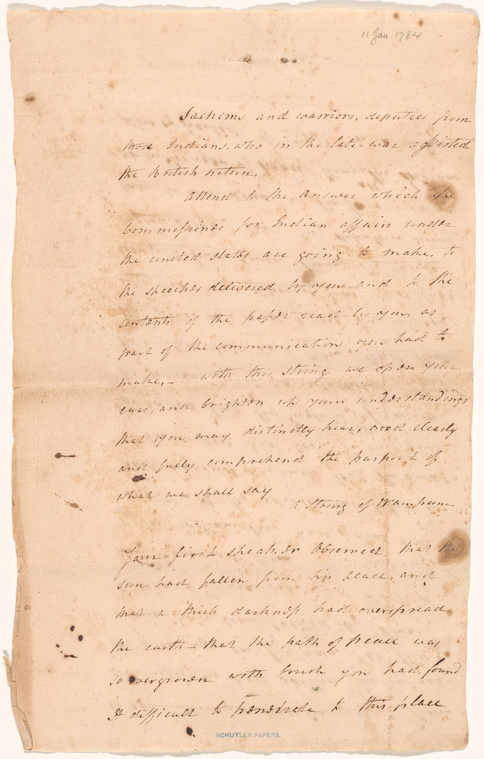 11 Jan 1784
Sachems and warriors, deputies from
those Indians, who in the late war assisted
the British nation.
Attend to the answer which the
Commissioners for Indian affairs under
the united states are going to make, to
the speeches delivered by you and to the
contents of the paper read by you as
part of the communication you had to
make,– with this string we open your
ears, and brighten up your understandings
that you may distinctly hear, and clearly
and fully comprehend the purport of
what we shall say
a string of wampum
Your first speaker observed that the
sun had fallen from his place, and
that a thick darkness had overspread
the earth – that the path of peace was
so overgrown with brush you had found
it difficult to penetrate to this place
SCHUYLER PAPERS.